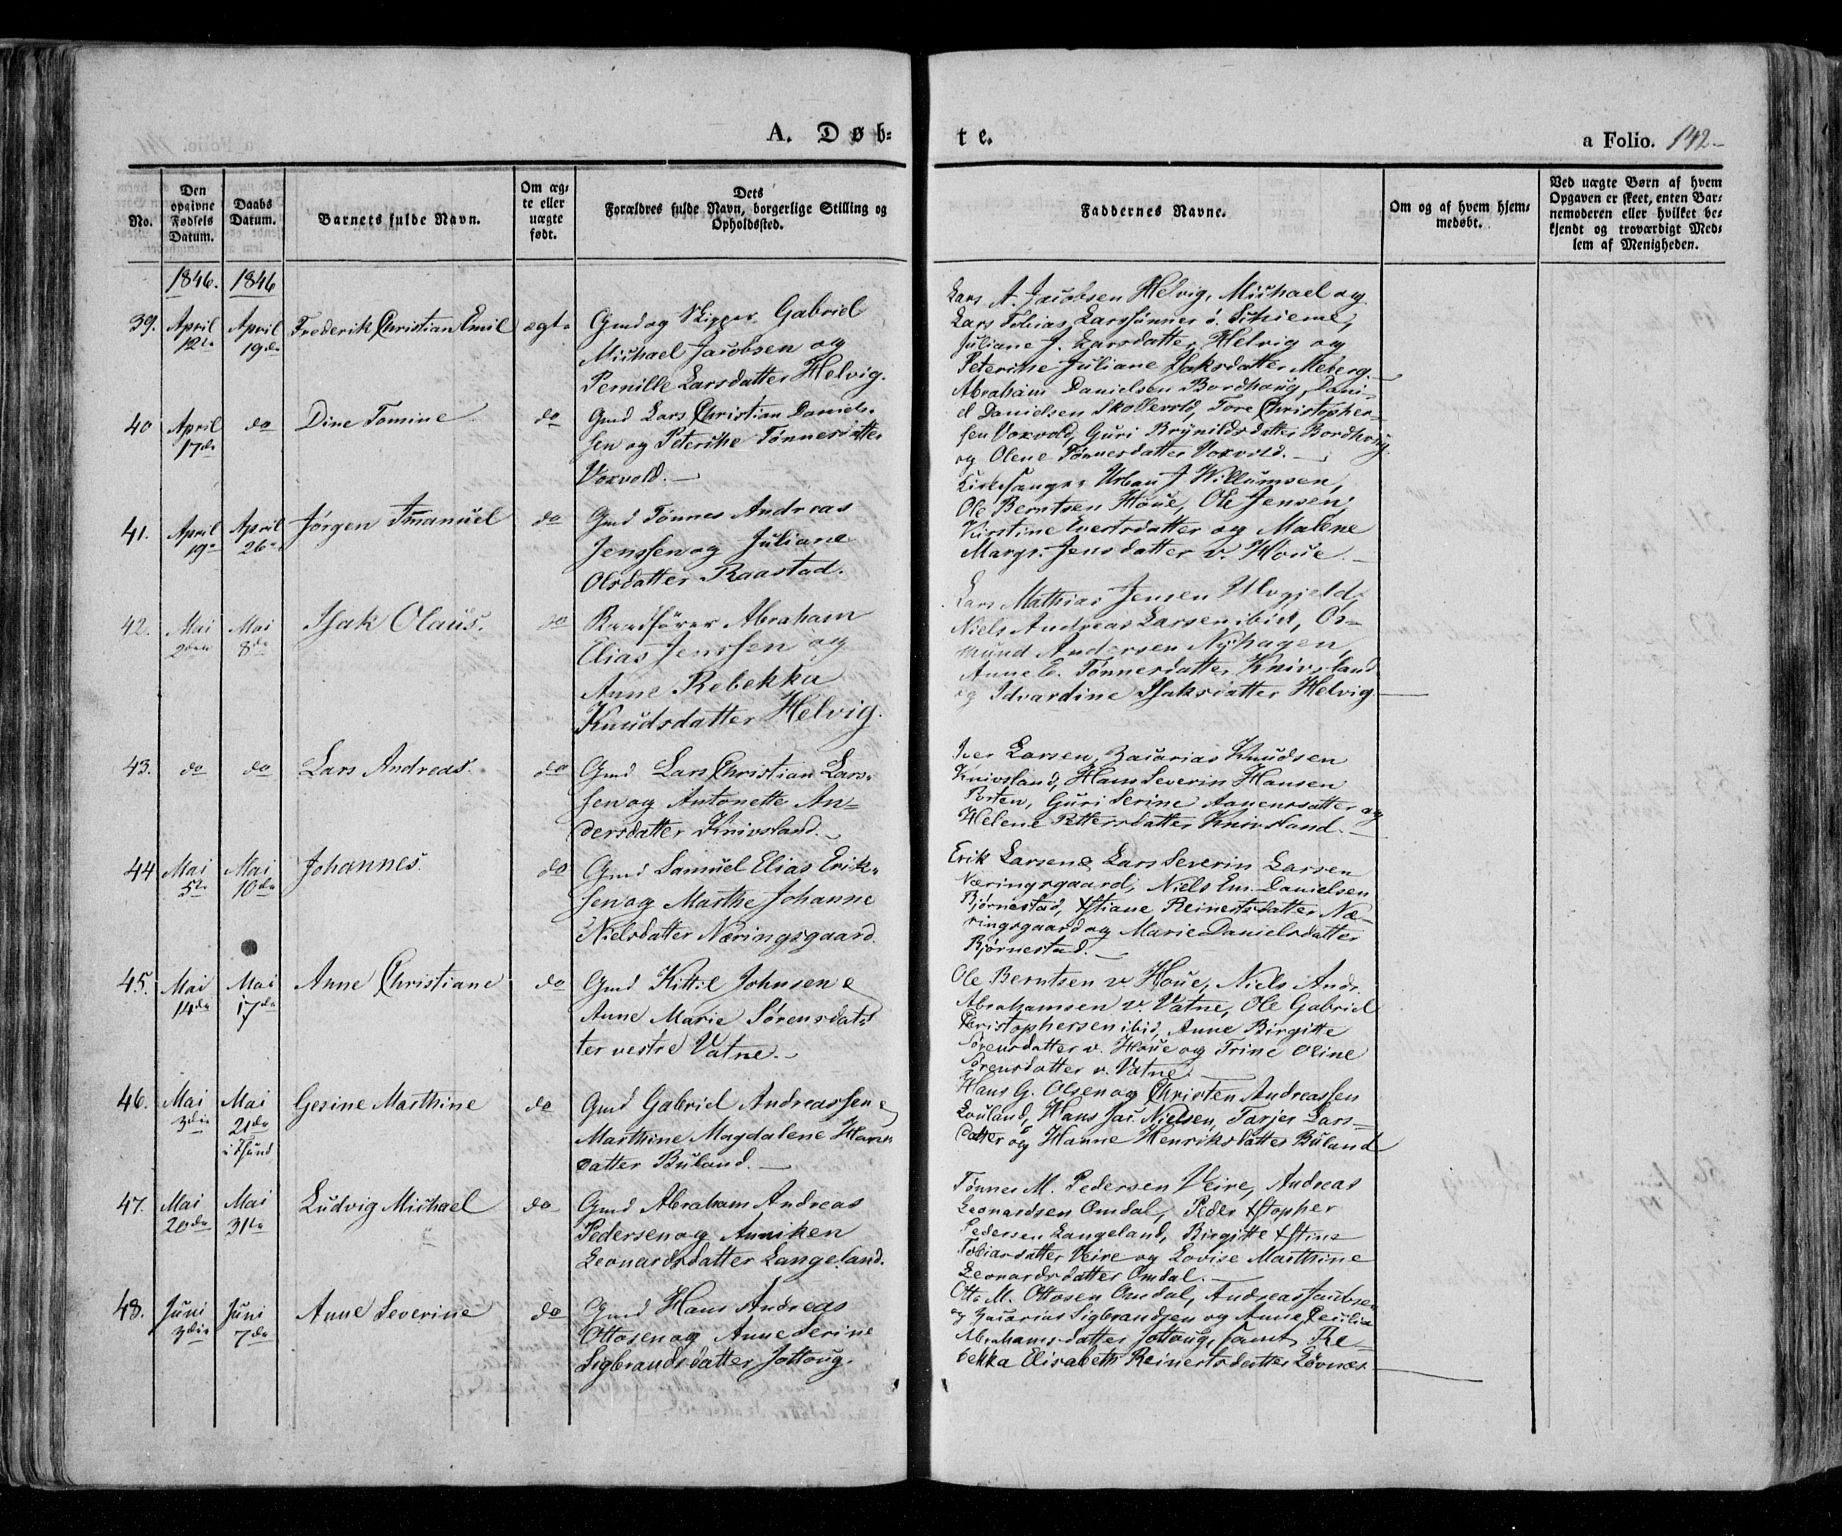 A. Døb-
te.
a Folio. 142.
No.
Den opgivne Fødsels Datum.
Daabs Datum.
Barnets fulde Navn.
Om ægte eller uægte født.
Dets
Forældres fulde Navn, borgerlige Stilling og
Opholdssted.
Faddernes Navne.
Om og af hvem hjemmedøbt.
Ved uægte Børn af hvem
Opgaven er skeet, enten Bar-
nemoderen eller hvilket be-
kjendt og troværdigt Med-
lem af Menigheden.
1846. 1846
39. April 12te April 19de Frederik Christian Emil ægte
Gmd og Skipper Gabriel
Michael Jacobsen og
Pernille Larsdatter Helvig.
Lars A. Jacobsen Helvig, Michael og
Lars Tobias Larssønner ö. Schieme,
Juliane J. Larsdatter Helvig og
Peterike Juliane Isaksdatter Meberg.
40 April 17de do Dine Tomine do
Gmd Lars Christian Daniel-
sen og Peterike Tønnesdatter
Voxvold.
Abraham Danielsen Bordhaug, Dani-
el Danielsen Skollevold, Tore Christopher-
sen Voxvold, Guri Brynildsdatter Bordhaug
og Olene Tønnesdatter Voxvold.
41. April 19de April 26de Jørgen Imanuel do
Gmd Tønnes Andreas
Jenssen og Juliane
Olsdatter Raastad.
Kirkesanger Urban J Willumsen,
Ole Berntsen Houe, Ole Jensen,
Kirstine Evertsdatter og Malene
Margr. Jensdatter v. Houe.
42. Mai 2den Mai 8de Isak Olaus. do
Abraham
Elias Jenssen og
Anne Rebekka
Knudsdatter Helvig.
Lars Mathias Jensen Ulvgjeld,
Niels Andreas Larsen ibid, Os-
mund Andersen Nyhagen,
Anne E. Tønnesdatter Knivsland
og Idvardine Isaksdatter Helvig
43. do do Lars Andreas. do
Gmd Lars Christian Lars-
sen og Antonette An-
dersdatter Knivsland.
Iver Larsen, Zacarias Knudsen
Knivsland, Hans Severin Hansen
Porten, Guri Serine Aanensdatter og
Helene Pettersdatter Knivsland.
44 Mai 5te Mai 10de Johannes. do
Gmd Samuel Elias Erik-
sen og Marthe Johanne
Nielsdatter Næringsgaard.
Erik Larsen & Lars Severin Larsen
Næringsgaard, Niels Em. Danielsen
Bjørnestad, Xstiane Reinertsdatter Næ-
ringsgaard og Marie Danielsdatter
Bjørnestad.
45. Mai 14de Mai 17de Anne Christiane do
Gmd Kittil Johnsen &
Anne Marie Sørensdat-
ter vestre Vatne.
Ole Berntsen v Houe, Niels Andr.
Abrahamsen v. Vatne, Ole Gabriel
Christophersen ibid, Anne Birgitte
Sørensdatter v. Houe og Trine Oline
Sørensdatter v. Vatne.
46. Mai 3die Mai 21de Gesine Marthine do
Gmd Gabriel Andreassen &
Marthine Magdalene Hans-
datter Buland.
Hans G. Olsen og Christen Andreassen
Louland, Hans Jac. Nielsen, Tarjer Lars-
datter og Hanne Henriksdatter Buland
47. Mai 20de Mai 31te Ludvig Michael do
Gmd Abraham Andreas
Pedersen og Anniken
Leonardsdatter Langeland.
Tønnes M. Pedersen Veire, Andreas
Leonardsen Omdal, Peder Xstopher
Pedersen Langeland, Birgitte Xstine
Tobiasdatter Veire og Lovise Marthine
Leonardsdatter Omdal.
48. Juni 3die Juni 7de Anne Severine do
Gmd Hans Andreas
Ottosen og Anne Serine
Sigbrandsdatter Jottoug.
Otto M. Ottosen Omdal, Andreas Jacobsen
og Zacarius Sigbrandsen og Anne Cecilia
Abrahamsdatter Jottoug, samt Re-
bekka Elisabeth Reinertsdatter Lövnæs